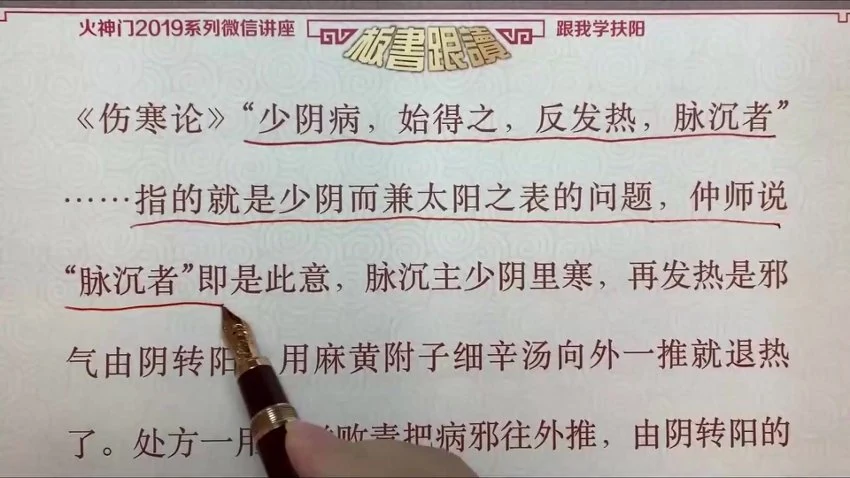 火神门2019系列微信讲座
板書跟讀
跟我学扶阳
《伤寒论》“少阴病，始得之，反发热，脉沉者”
……指的就是少阴而兼太阳之表的问题，仲师说
“脉沉者”即是此意，脉沉主少阴里寒，再发热是邪
气由阴转阳 用麻黄附子细辛汤向外一推就退热
了。处方一用 败毒把病邪往外推，由阴转阳的